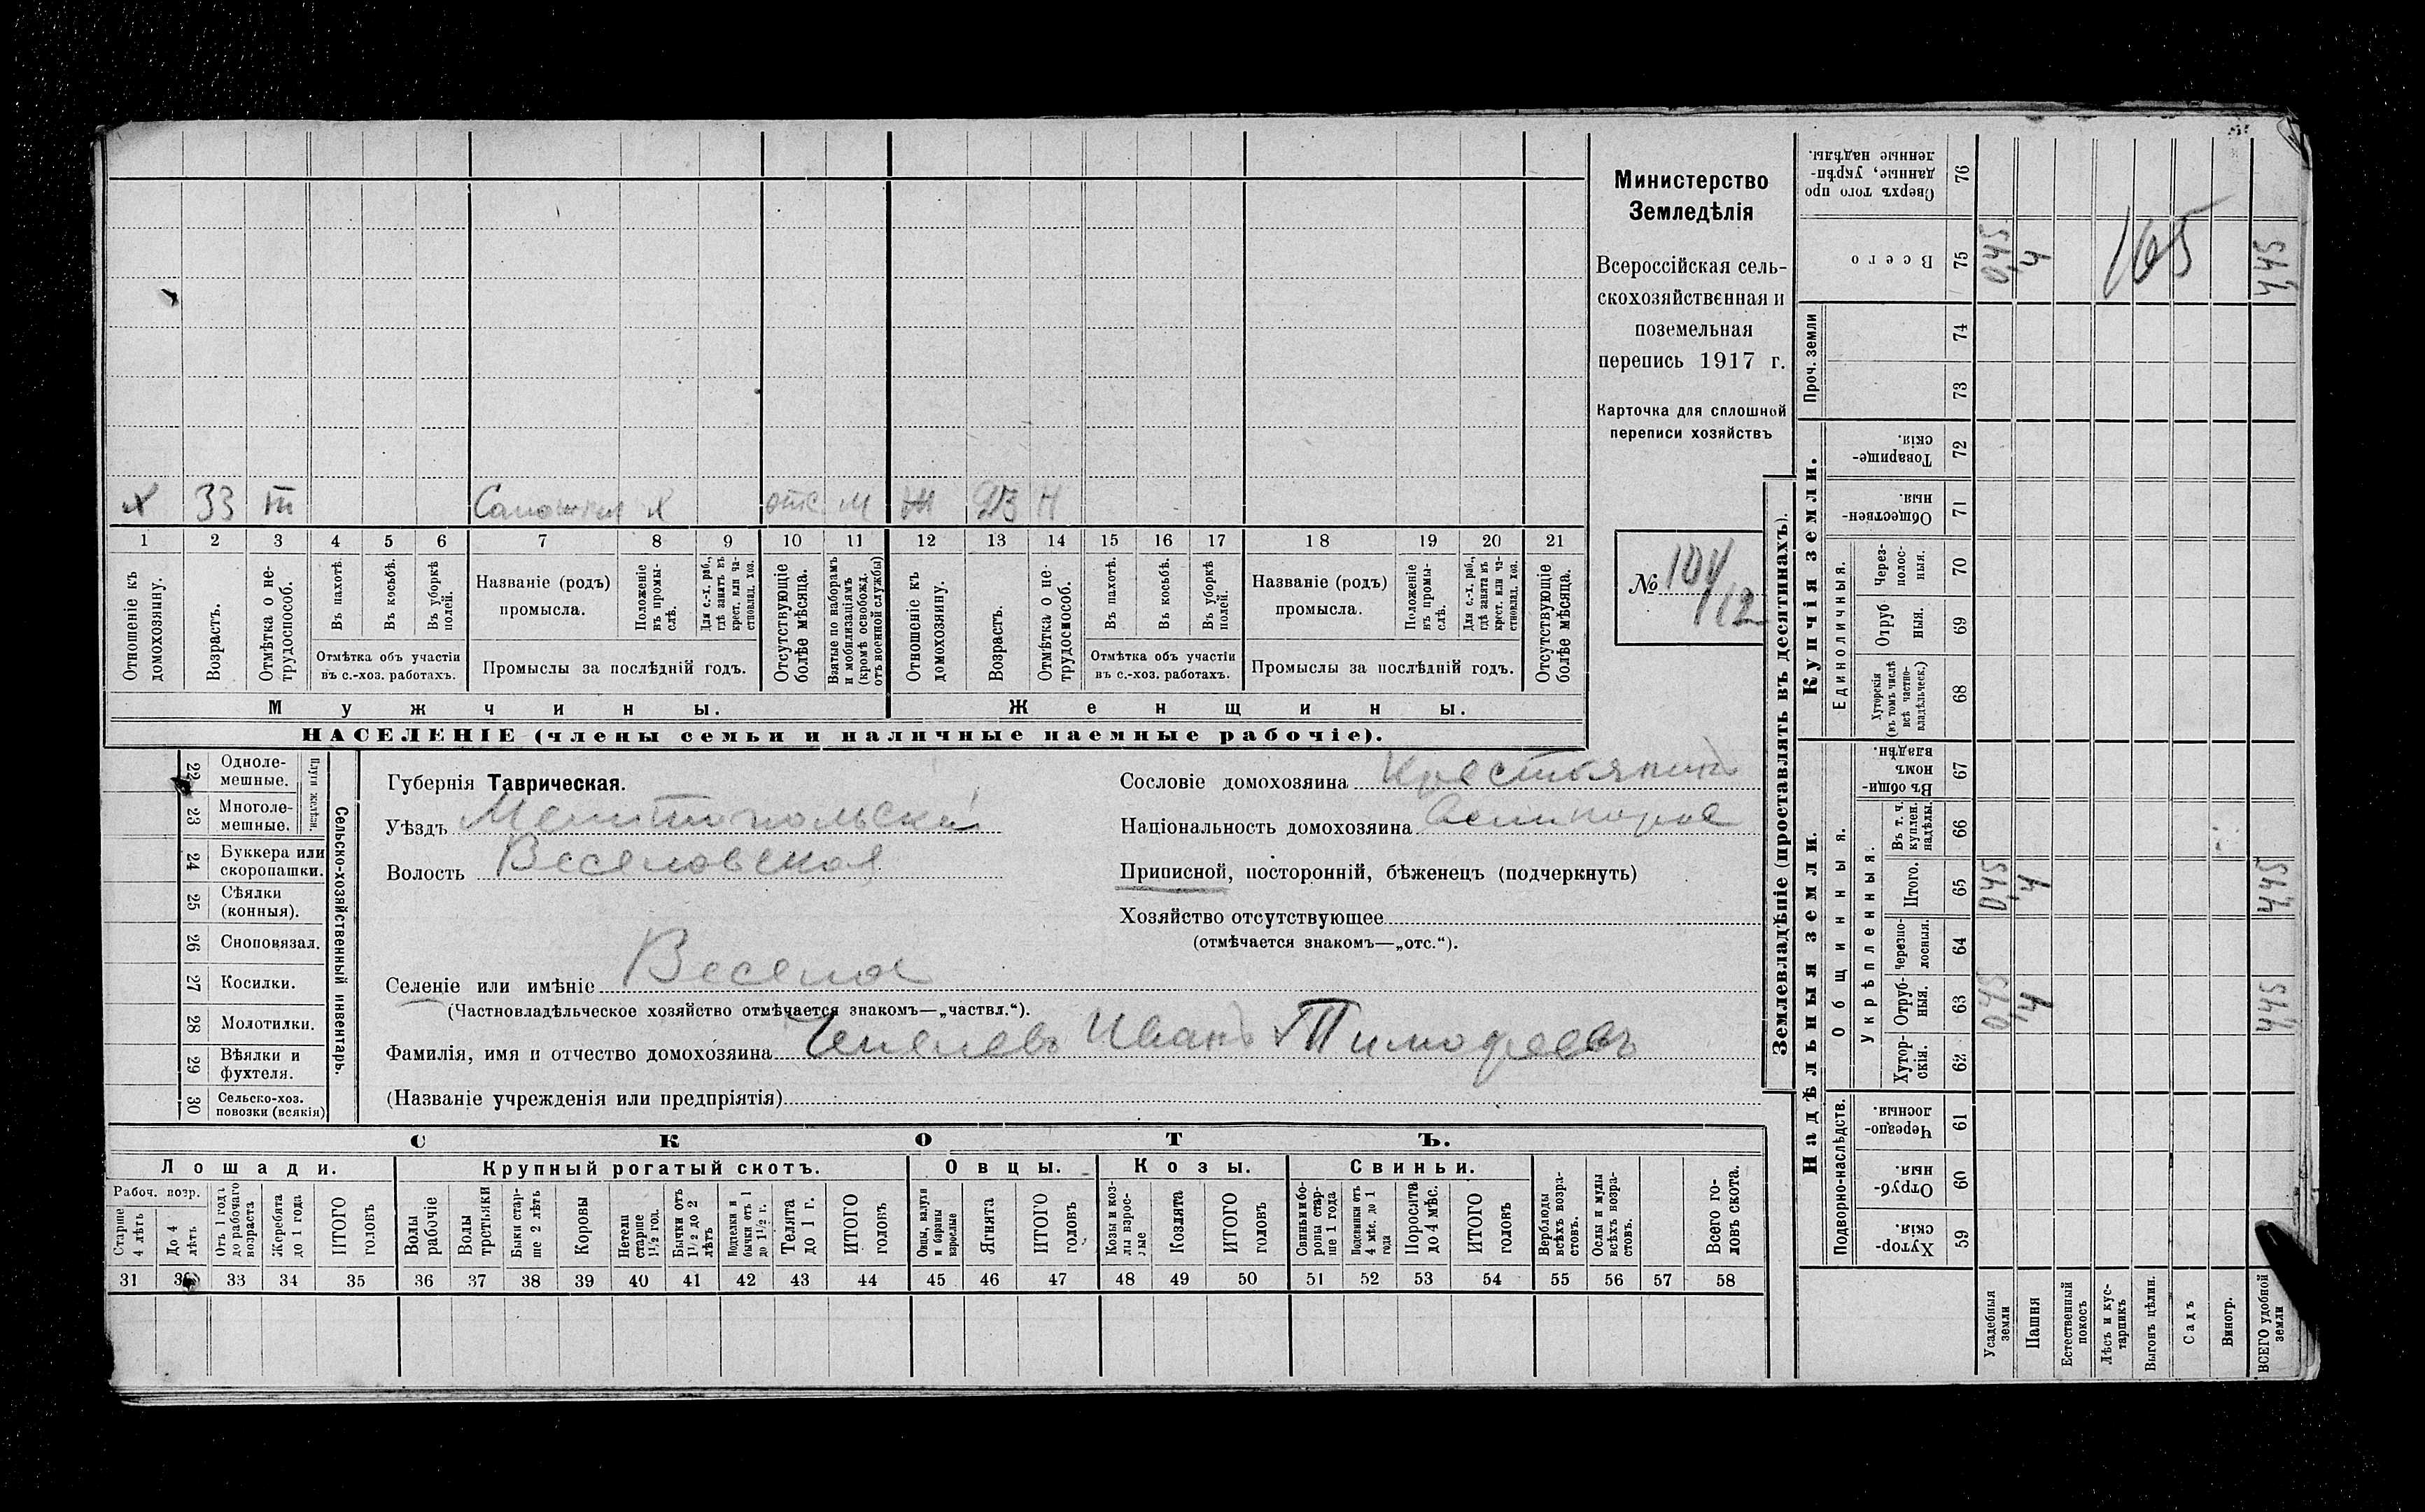 Министерство
Земледѣлія
Всероссійская сель-
скохозяйственная и
поземельная
перепись 1917 г.
Карточка для сплошной
переписи хозяйствъ
№ 104/12
х 33 х отс. м ж 23 н
1 2 3 4 5 6 7 8 9 10 11 12 13 14 15 16 17 18 19 20 21
Отношеніе къ домохозяину.
Возрастъ.
Отмѣтка о не-трудоспособ.
Въ пахотѣ.
Въ косьбѣ.
Въ уборкѣ полей.
Отмѣтка объ участіи
въ с.-хоз. работахъ.
Названіе (родъ)
промысла.
Положеніе въ промы-слѣ.
Для с.-х. раб., гдѣ занятъ въ крест. или ча-стновлад. хоз.
Промыслы за послѣдній годъ.
Отсутствующіе болѣе мѣсяца.
Взятые по наборамъ и мобилизаціямъ (кромѣ освобожд. отъ военной службы)
Отношеніе къ домохозяину.
Возрастъ.
Отмѣтка о не-трудоспособ.
Въ пахотѣ.
Въ косьбѣ.
Въ уборкѣ полей.
Отмѣтка объ участіи
въ с.-хоз. работахъ.
Названіе (родъ)
промысла.
Положеніе въ промы-слѣ.
Для с.-х. раб., гдѣ занята въ крест. или ча-стновлад. хоз.
Промыслы за послѣдній годъ.
Отсутствующіе болѣе мѣсяца.
Мужчины.
Женщины.
НАСЕЛЕНІЕ (члены семьи и наличные наемные рабочіе).
Сельско-хозяйственный инвентарь.
Плуги желѣзн.
22 Одноле-мешные.
23 Многоле-мешные.
24 Буккера или скоропашки.
25 Сѣялки (конныя).
26 Сноповязал.
27 Косилки.
28 Молотилки.
29 Вѣялки и фухтеля.
30 Сельско-хоз. повозки (всякія)
Губернія Таврическая.
Уѣздъ Мелитопольскій
Волость Веселовская
Селеніе или имѣніе Весела
(Частновладѣльческое хозяйство отмѣчается знакомъ—„частвл.“).
Сословіе домохозяина Крестьянинъ
Національность домохозяина
Приписной, посторонній, бѣженецъ (подчеркнуть)
Хозяйство отсутствующее
(отмѣчается знакомъ—„отс.“).
Фамилія, имя и отчество домохозяина Чепелевъ Иванъ Тимофеевъ
(Названіе учрежденія или предпріятія)
СКОТЪ.
Лошади. Крупный рогатый скотъ. Овцы. Козы. Свиньи.
Рабоч. возр.
Старше 4 лѣтъ
До 4 лѣтъ
Отъ 1 года до рабочаго возраста
Жеребята до 1 года
ИТОГО головъ
Волы рабочіе
Волы третьяки
Быки стар-ше 2 лѣтъ
Коровы
Нетели старше 1½ год.
Бычки отъ 1½ до 2 лѣтъ
Подтелки и бычки отъ 1 до 1½ г.
Телята до 1 г.
ИТОГО головъ
Овцы, валухи и бараны взрослые
Ягнята
ИТОГО головъ
Козы и коз-лы взрос-лые
Козлята
ИТОГО головъ
Свиньи и бо-ровы стар-ше 1 года
Подсвинки отъ 4 мѣс. до 1 года
Поросята до 4 мѣс.
ИТОГО головъ
Верблюды всѣхъ возра-стовъ.
Ослы и мулы всѣхъ возра-стовъ.
Всего го-ловъ скота.
31 32 33 34 35 36 37 38 39 40 41 42 43 44 45 46 47 48 49 50 51 52 53 54 55 56 57 58
Землевладѣніе (проставлять въ десятинахъ).
Надѣльныя земли.
Подворно-наслѣдств.
Хутор-скія. 59
Отруб-ныя. 60
Черезпо-лосныя. 61
Общинныя.
Укрѣпленныя.
Хутор-скія. 62
Отруб-ныя. 63 0,45 4 4,45
Черезпо-лосныя. 64
Итого. 65 0,45 4 4,45
Въ т. ч. куплен. надѣлы. 66
Въ общин-номъ владѣн. 67
Купчія земли.
Единоличныя.
Хуторскія (въ томъ числѣ всѣ частно-владѣльческ.) 68
Отруб ныя. 69
Через-полос-ныя. 70
Обществен-ныя. 71
Товарище-скія. 72
Проч. земли
73 74
Всего 75 0,45 4 4,45
165
Сверхъ того про данные, укрѣп-ленные надѣлы. 76
Усадебныя земли
Пашня
Естественный покосъ
Лѣсъ и кус-тарникъ
Выгонъ цѣлин.
Садъ
Виногр.
ВСЕГО удобной земли